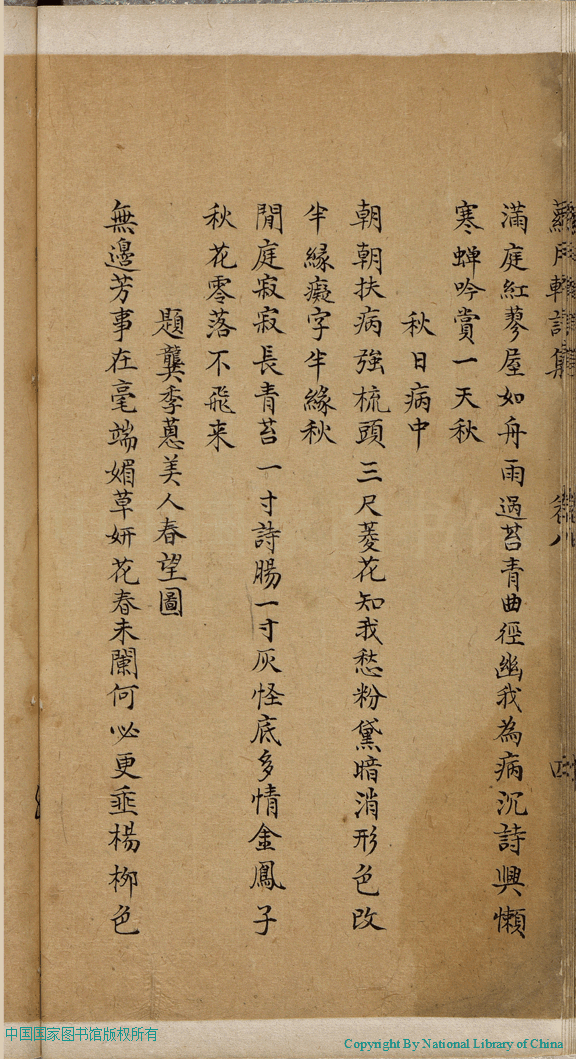 滿庭紅蓼屋如舟雨過苔青曲徑幽我為病沉詩興懶
寒蟬吟賞一天秋
秋日病中
朝朝扶病強梳頭三尺菱花知我愁粉黛暗消形色改
半緣癡字半緣秋
閒庭寂寂長青苔一寸詩腸一寸灰怪底多情金鳳子
秋花零落不飛来
題龔季蕙美人春望圖
無邊芳事在毫端媚草妍花春未闌何必更垂楊柳色
中国国家图书馆版权所有
Copyright By National Library of China